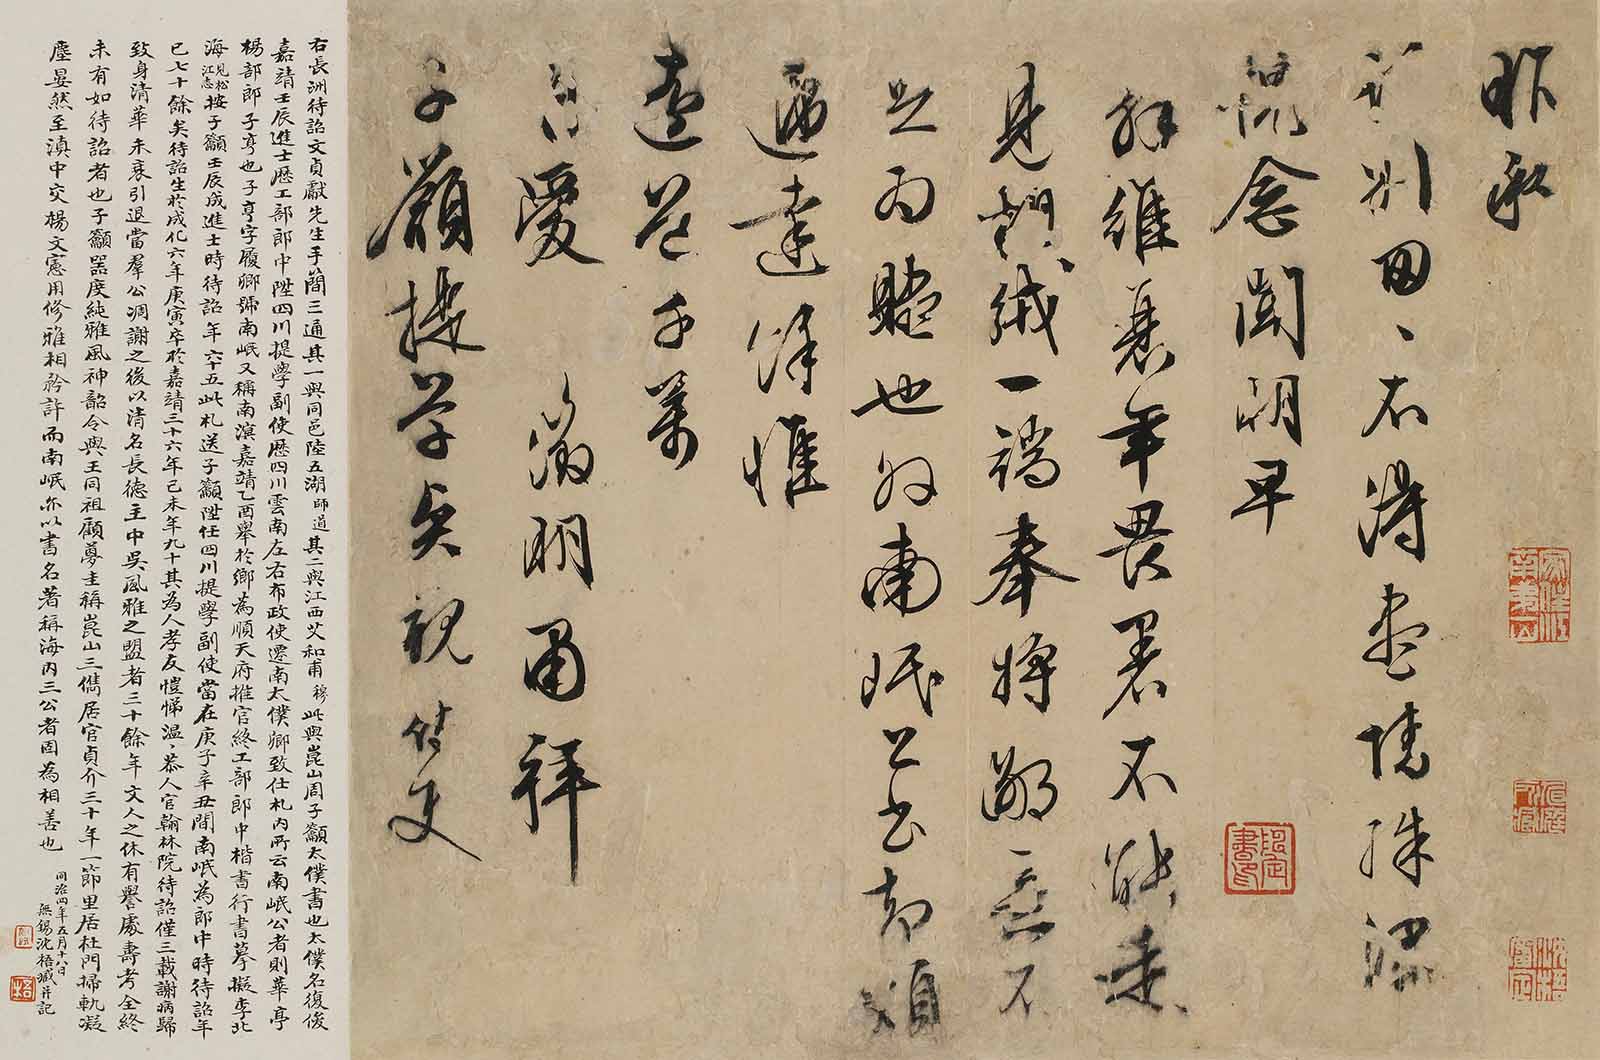 昨承
訪別匆匆不得盡情殊深
慌念闻明早
解維衰年畏暑不能走
見輕絨一端奉將鄙意不
足為贐也外南岷公書却煩
逓達餘惟
遠道千萬
自愛 徵明再拜
子籲提學契親侍史
右長洲待詔文貞獻先生手簡三通其一與同邑陸五湖師道其二與江西艾和甫穆此與崑山周子籲太僕書也太僕名復俊
嘉靖壬辰進士歷工部郎中陞四川提學副使歷四川雲南左右布政使遷南太僕卿致仕札內所云南岷公者則華亭
楊部郎子亨也子亨字履卿號南岷又稱南濱嘉靖乙酉舉於鄉為順天府推官終工部郎中楷書行書摹擬李北
海見松江志按子籲壬辰成進士時待詔年六十五此札送子籲陞任四川提學副使當在庚子辛丑間南岷為郎中時待詔年
已七十餘矣待詔生於成化六年庚寅卒於嘉靖三十六年己未年九十其為人孝友愷悌溫溫恭人官翰林院待詔僅三載謝病歸
致身清華未衰引退當羣公凋謝之後以清名長德主中吳風雅之盟者三十餘年文人之休有譽處壽考全終
未有如待詔者也子籲器度純雅風神韶令與王同祖顧夢圭稱崑山三儁居官貞介三十年一節里居杜門掃軌凝
塵晏然至滇中交楊文憲用修雅相矜許而南岷亦以書名著稱海內三公者固為相善也
同治四年五月十八日
無錫沈梧臧并記